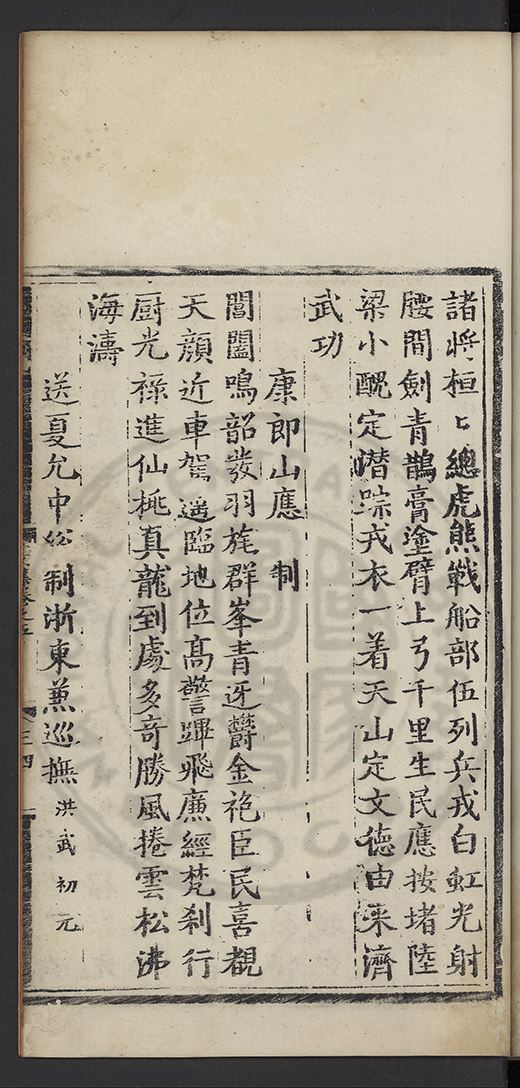 諸將桓〻總虎熊戰船部伍列兵戎白虹光射
腰間劍青鵲膏塗臂上弓千里生民應按堵陸
梁小醜定潜踪戎衣一着天山定文德由来濟
武功
康郎山應 制
閶闔鳴韶發羽旄群峯青迓欝金袍臣民喜覩
天顔近車駕遥臨地位髙警蹕飛廉經梵刹行
厨光禄進仙桃真龍到處多竒勝風捲雲松沸
海濤
送夏允中總制浙東兼巡撫 洪武初元